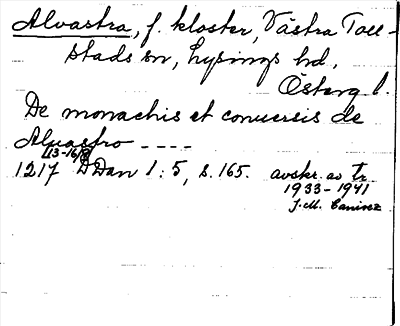 Alvastra, f. kloster, Västra Toll-
stads sn, Lysings hd,
Österg l.
De monachis et conversis de
Alvastro ----
13-16/8
1217 DDan 1:5, s. 165. avskr. av tr.
1933-1941
J.M. Canivez